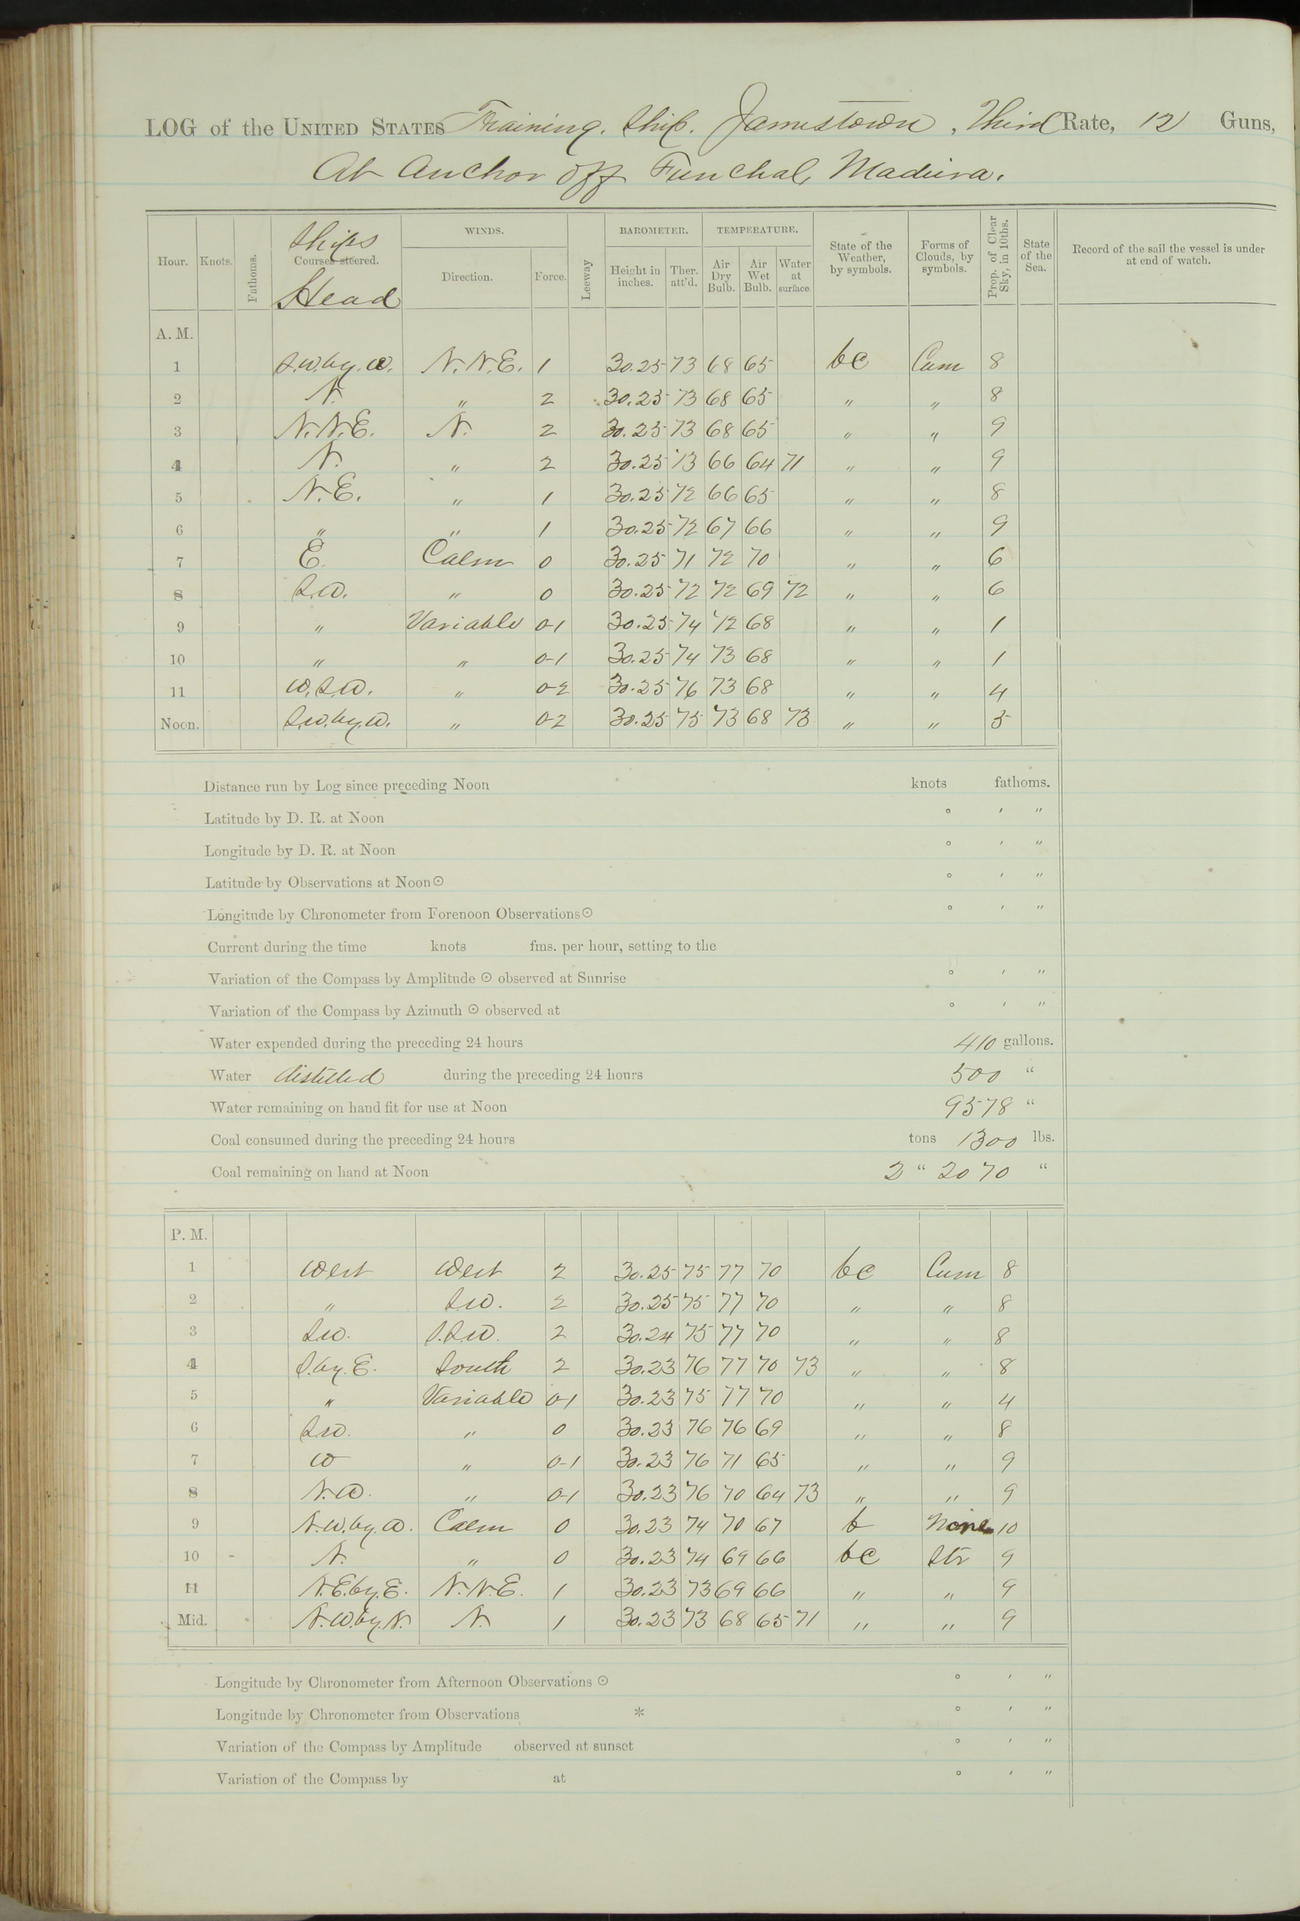 LOG of the UNITED STATES Training Ship Jamestown, Third Rate, 12 Guns,
At Anchor off Funchal, Madeira.
Hour. Knots. Fathoms. Ships Courses steered. Head WINDS. Direction. Force. Leeway BAROMETER. Height in inches. Ther. att'd. TEMPERATURE. Air Dry Bulb. Air Wet Bulb. Water at surface. State of the Weather, by symbols. Forms of Clouds, by symbols. Prop. of Clear Sky, in 10ths. State of the Sea. Record of the sail the vessel is under at end of watch.
A. M.
1 S.W.by.W. N.N.E. 1 30.25 73 68 65 bc Cum 8
2 N. " 2 30.25 73 68 65 " " 8
3 N.N.E. N. 2 30.25 73 68 65 " " 9
4 N. " 2 30.25 73 66 64 71 " " 9
5 N.E. " 1 30.25 72 66 65 " " 8
6 " " 1 30.25 72 67 66 " " 9
7 E. Calm 0 30.25 71 72 70 " " 6
8 S.W. " 0 30.25 72 72 69 72 " " 6
9 " Variable 0-1 30.25 74 72 68 " " 1
10 " " 0-1 30.25 74 73 68 " " 1
11 W.S.W. " 0-2 30.25 76 73 68 " " 4
Noon. S.W.by.W. " 0-2 30.25 75 73 68 73 " " 5
Distance run by Log since preceding Noon knots fathoms.
Latitude by D. R. at Noon ° ′ ″
Longitude by D. R. at Noon ° ′ ″
Latitude by Observations at Noon ☉ ° ′ ″
Longitude by Chronometer from Forenoon Observations ☉ ° ′ ″
Current during the time knots fms. per hour, setting to the
Variation of the Compass by Amplitude ☉ observed at Sunrise ° ′ ″
Variation of the Compass by Azimuth ☉ observed at ° ′ ″
Water expended during the preceding 24 hours 410 gallons.
Water distilled during the preceding 24 hours 500 "
Water remaining on hand fit for use at Noon 9578 "
Coal consumed during the preceding 24 hours tons 1300 lbs.
Coal remaining on hand at Noon 2 " 2070 "
P. M.
1 West West 2 30.25 75 77 70 bc Cum 8
2 " SW. 2 30.25 75 77 70 " " 8
3 SW. S.SW. 2 30.24 75 77 70 " " 8
4 S.by.E. South 2 30.23 76 77 70 73 " " 8
5 " Variable 0-1 30.23 75 77 70 " " 4
6 SW. " 0 30.23 76 76 69 " " 8
7 W " 0-1 30.23 76 71 65 " " 9
8 N.W. " 0-1 30.23 76 70 64 73 " " 9
9 N.W.by.W. Calm 0 30.23 74 70 67 b None 10
10 N. " 0 30.23 74 69 66 bc Str 9
11 N.E.by.E. N.N.E. 1 30.23 73 69 66 " " 9
Mid. N.W.by.N. N. 1 30.23 73 68 65 71 " " 9
Longitude by Chronometer from Afternoon Observations ☉ ° ′ ″
Longitude by Chronometer from Observations * ° ′ ″
Variation of the Compass by Amplitude observed at sunset ° ′ ″
Variation of the Compass by at ° ′ ″